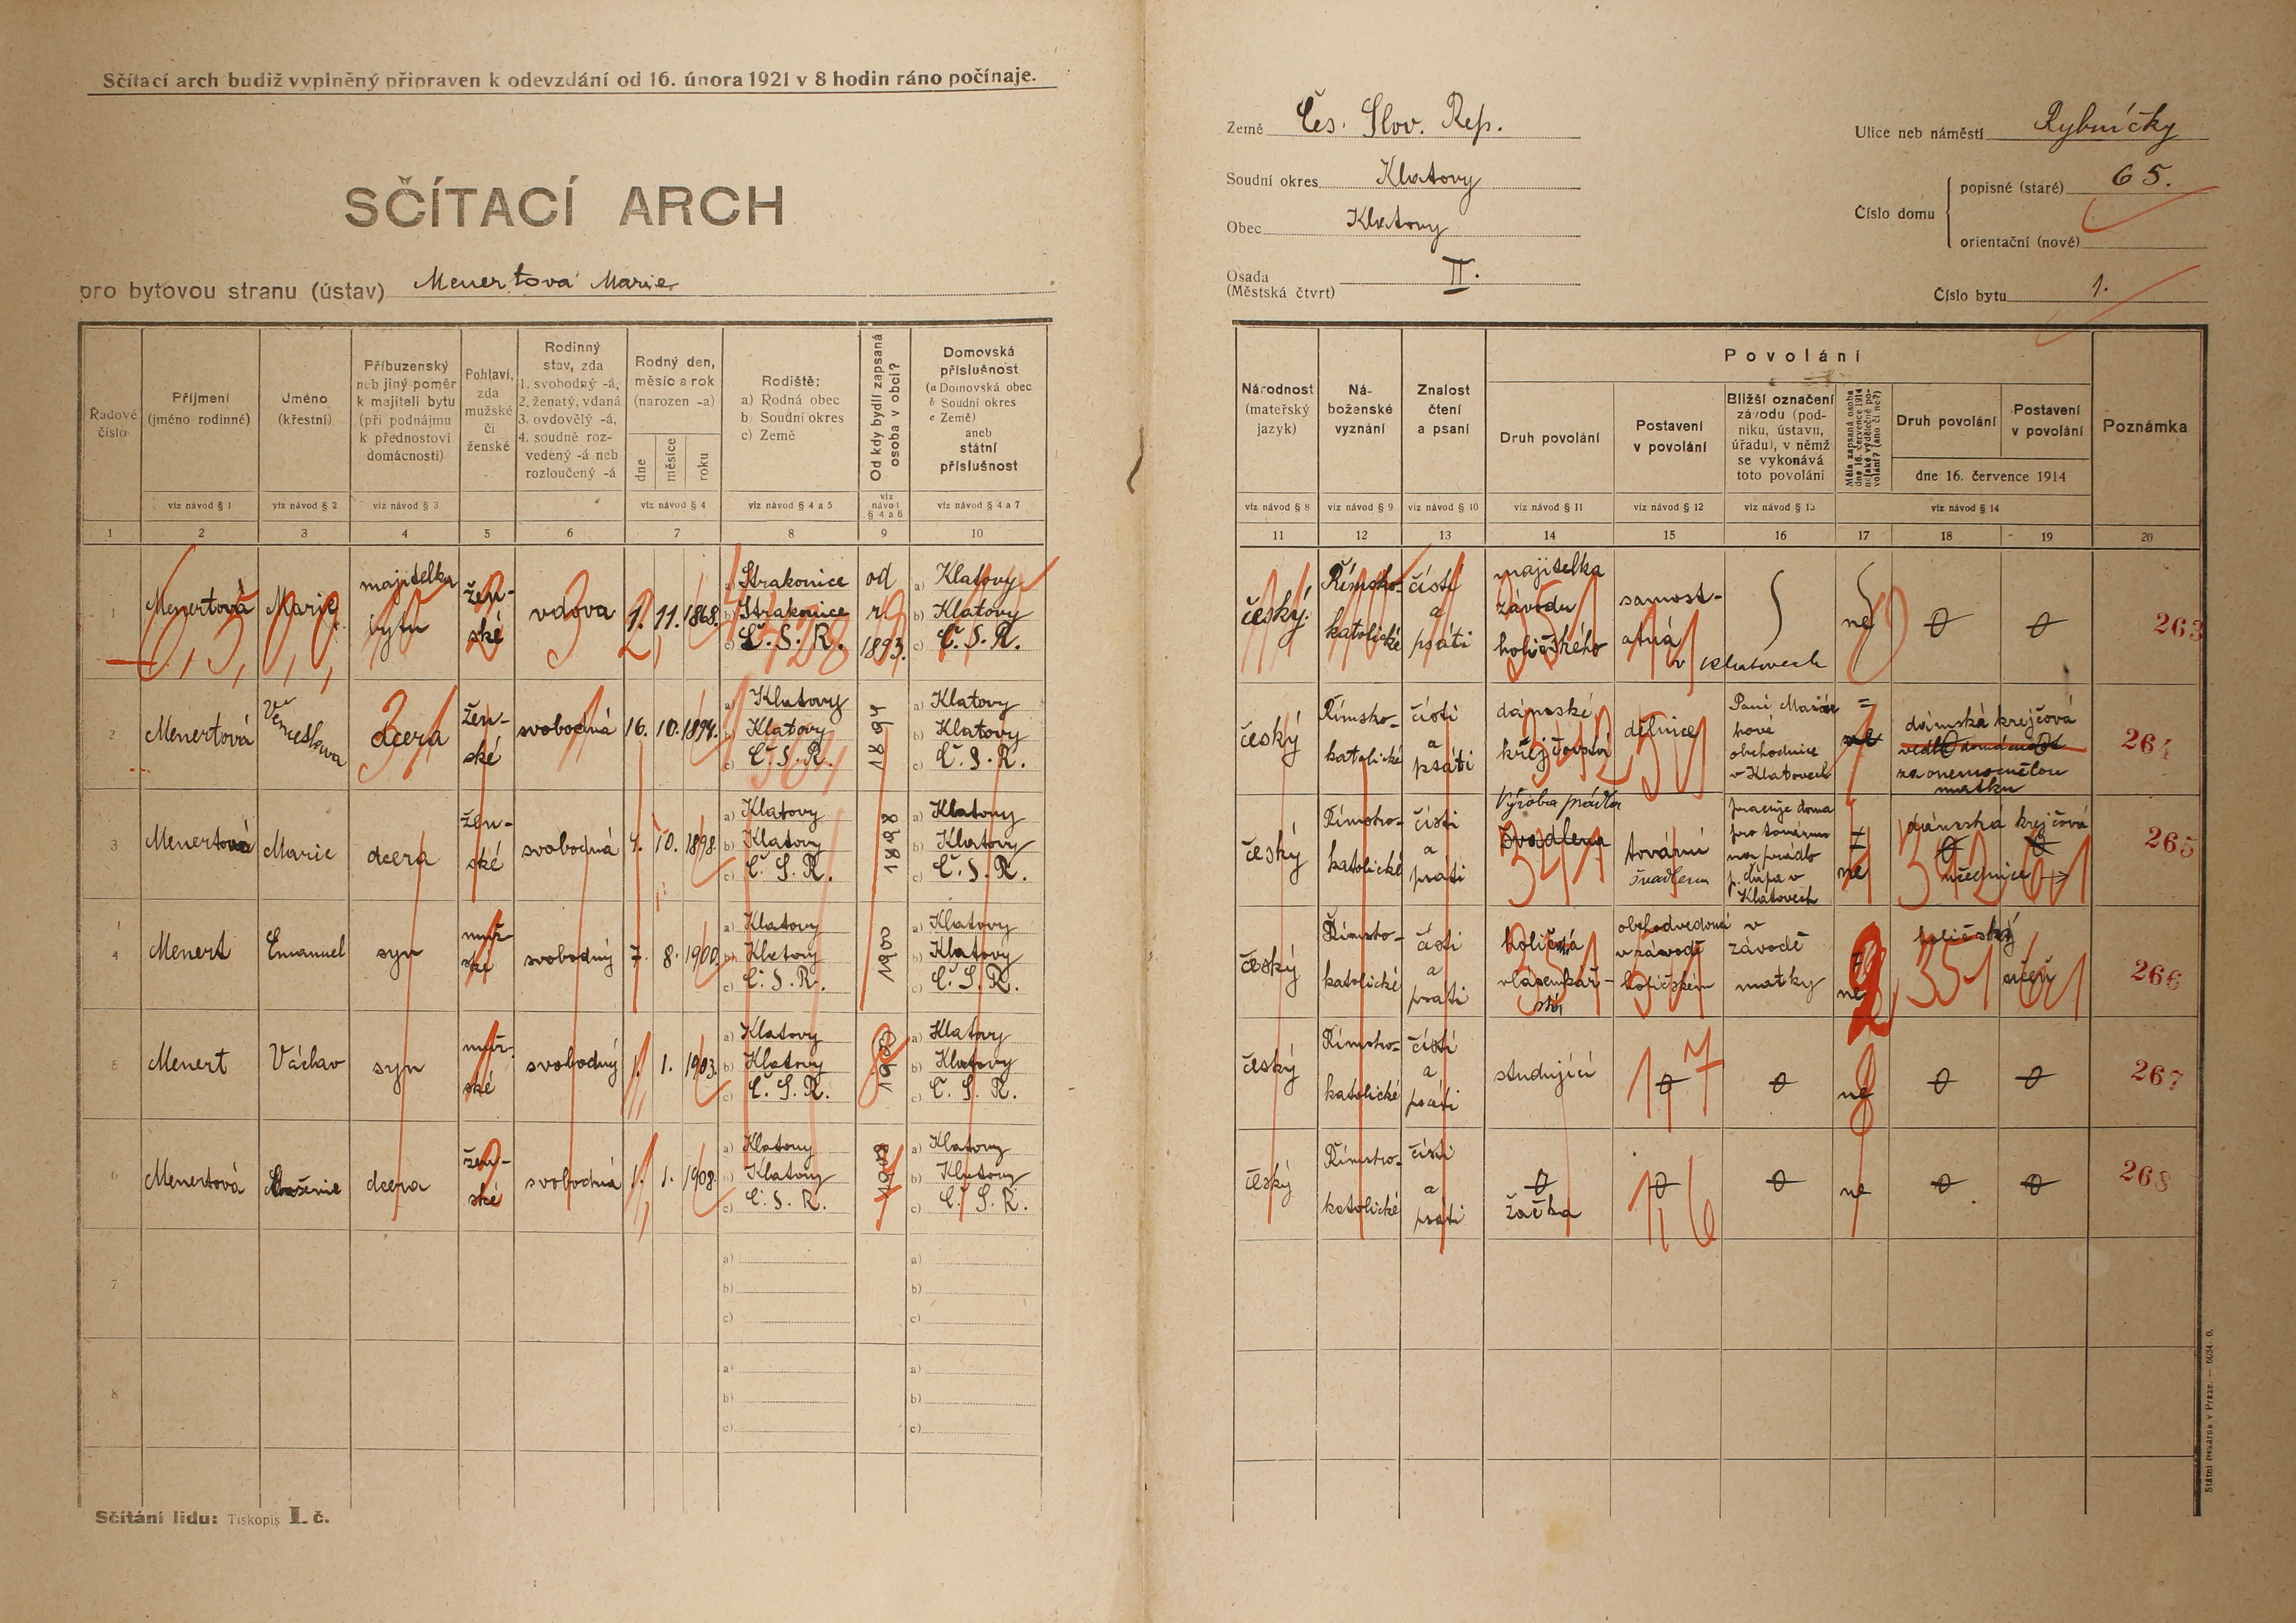 Sčítací arch budiž vyplněný připraven k odevzdání od 16. února 1921 v 8 hodin ráno počínaje.
SČÍTACÍ ARCH
pro bytovou stranu (ústav) Menertová Marie
Země Čes. Slov. Rep.
Soudní okres Klatovy
Obec Klatovy
Osada
(Městská čtvrt) II.
Ulice neb náměstí Rybníčky
Číslo domu
popisné (staré) 65.
orientační (nové)
Číslo bytu 1.
Řadové
číslo
Příjmení
(jméno rodinné)
viz návod § 1
Jméno
(křestní)
viz návod § 2
Příbuzenský
neb jiný poměr
k majiteli bytu
(při podnájmu
k přednostovi
domácnosti)
viz návod § 3
Pohlaví,
zda
mužské
či
ženské
Rodinný
stav, zda
1. svobodný -á,
2. ženatý, vdaná
3. ovdovělý -á,
4. soudně roz-
vedený -á neb
rozloučený -á
Rodný den,
měsíc a rok
(narozen -a)
dne
měsíce
roku
viz návod § 4
Rodiště:
a) Rodná obec
b) Soudní okres
c) Země
viz návod § 4 a 5
Od kdy bydlí zapsaná
osoba v obci?
viz
návod
§ 4 a 6
Domovská
příslušnost
(a Domovská obec
b Soudní okres
c Země)
aneb
státní
příslušnost
viz návod § 4 a 7
Národnost
(mateřský
jazyk)
viz návod § 8
Ná-
boženské
vyznání
viz návod § 9
Znalost
čtení
a psaní
viz návod § 10
Povolání
Druh povolání
viz návod § 11
Postavení
v povolání
viz návod § 12
Bližší označení
závodu (pod-
niku, ústavu,
úřadu), v němž
se vykonává
toto povolání
viz návod § 13
Měla zapsaná osoba
dne 16. července 1914
nějaké výdělečné po-
volání? (ano či ne?)
Druh povolání
Postavení
v povolání
dne 16. července 1914
viz návod § 14
Poznámka
1 2 3 4 5 6 7 8 9 10
11 12 13 14 15 16 17 18 19 20
1 Menertová Marie majitelka bytu žen-ské vdova 1. 11. 1868. a) Strakonice b) Strakonice c) Č. S. R. od r. 1893. a) Klatovy b) Klatovy c) Č. S. R.
český Římsko-katolické čísti a psáti majitelka závodu holičského samost-atná v Klatovech ne 0 0 263
2 Menertová Věnceslava dcera žen-ské svobodná 16. 10. 1894. a) Klatovy b) Klatovy c) Č. S. R. 1894 a) Klatovy b) Klatovy c) Č. S. R.
český Římsko-katolické čísti a psáti dámské krejčovství dělnice Paní obchodnice v Klatovech ne dámská krejčová za onemocnělou matku 264
3 Menertová Marie dcera žen-ské svobodná 4. 10. 1898. a) Klatovy b) Klatovy c) Č. S. R. 1898 a) Klatovy b) Klatovy c) Č. S. R.
český Římsko-katolické čísti a psáti Výroba prádla švadlena tovární švadlena pracuje doma pro továrnu na prádlo v Klatovech ne dámská krejčová 0 0 učednice 265
4 Menert Emanuel syn muž-ské svobodný 7. 8. 1900. a) Klatovy b) Klatovy c) Č. S. R. 1900 a) Klatovy b) Klatovy c) Č. S. R.
český Římsko-katolické čísti a psáti vlásenkář-ství obchodvedoucí v závodě holičském v závodě matky ne holičský učeň 266
5 Menert Václav syn muž-ské svobodný 1. 1. 1903. a) Klatovy b) Klatovy c) Č. S. R. a) Klatovy b) Klatovy c) Č. S. R.
český Římsko-katolické čísti a psáti studující 0 0 ne 0 0 267
6 Menertová dcera žen-ské svobodná 1. 1. 1908. a) Klatovy b) Klatovy c) Č. S. R. 1908 a) Klatovy b) Klatovy c) Č. S. R.
český Římsko-katolické čísti a psáti 0 žačka 0 0 ne 0 0 268
7 a) b) c) a) b) c)
8 a) b) c) a) b) c)
Sčítání lidu: Tiskopis I. č.